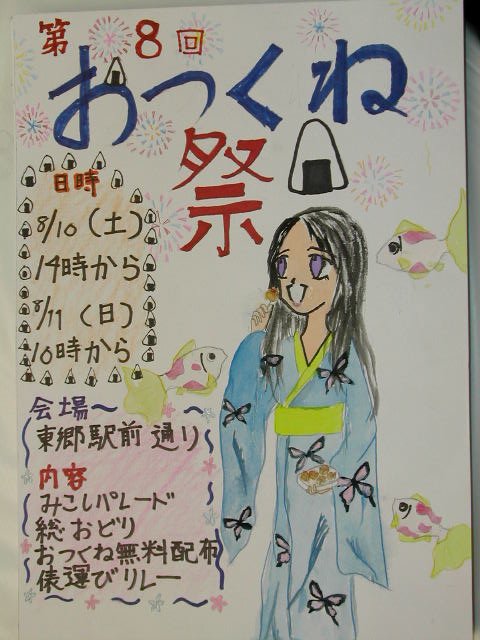 第8回
おつくね
祭
日時
8/10(土)
14時から
8/11(日)
10時から
会場~
東郷駅前通り
内容
みこしパレード
総おどり
おつくね無料配布
俵運びリレー